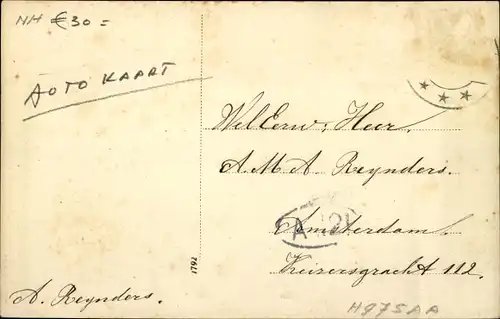 NH €30=
FOTO KAART
WelEerw. Heer
A.M.A. Reynders.
Amsterdam.
Keizersgracht 112.
1792
A. Reynders.
H975AA